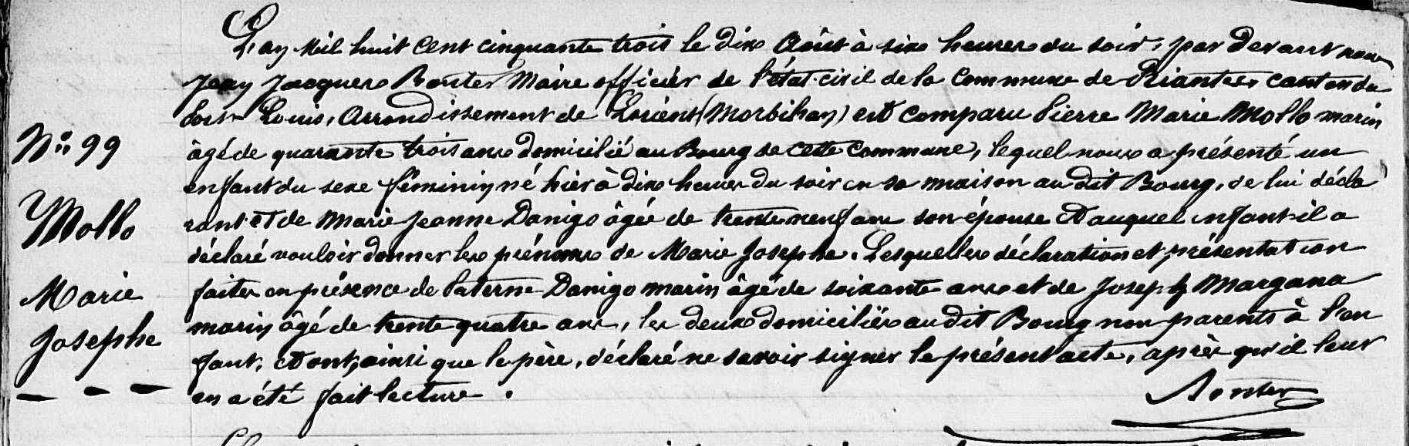 L'an Mil huit cent cinquante trois le dix Août à six heures du soir, par devant nous
Jean Jacques Maire officier de l'état civil de la Commune de Riantec canton du
Port Louis, Arrondissement de Lorient (Morbihan) est comparu Pierre Marie Mollo marin
N° 99
âgé de quarante trois ans domicilié au Bourg de cette Commune, lequel nous a présenté un
enfant du sexe féminin né hier à dix heures du soir en sa maison au dit Bourg, de lui décla
Mollo
rant et de Marie Jeanne Danigo âgée de trente neuf ans son épouse et auquel enfant il a
déclaré vouloir donner les prénoms de Marie Josephe. Lesquelles déclaration et présentation
Marie
faites en présence de Paterne Danigo marin âgé de soixante ans et de Joseph Margana
Josephe
marin âgé de trente quatre ans, les deux domiciliés au dit Bourg non parents à l'en
fant, et ont, ainsi que le père, déclaré ne savoir signer le présent acte, après qu'il leur
en a été fait lecture.